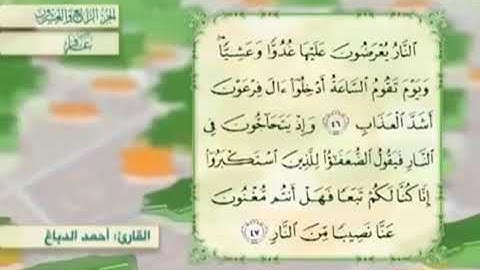 الجزء الرابع والعشرون
غافر
ٱلنَّارُ يُعْرَضُونَ عَلَيْهَا غُدُوًّا وَعَشِيًّا ۖ
وَيَوْمَ تَقُومُ ٱلسَّاعَةُ أَدْخِلُوٓا۟ ءَالَ فِرْعَوْنَ
أَشَدَّ ٱلْعَذَابِ ٤٦ وَإِذْ يَتَحَآجُّونَ فِى
ٱلنَّارِ فَيَقُولُ ٱلضُّعَفَٰٓؤُا۟ لِلَّذِينَ ٱسْتَكْبَرُوٓا۟
إِنَّا كُنَّا لَكُمْ تَبَعًا فَهَلْ أَنتُم مُّغْنُونَ
عَنَّا نَصِيبًا مِّنَ ٱلنَّارِ ٤٧
القارئ: أحمد الدباغ